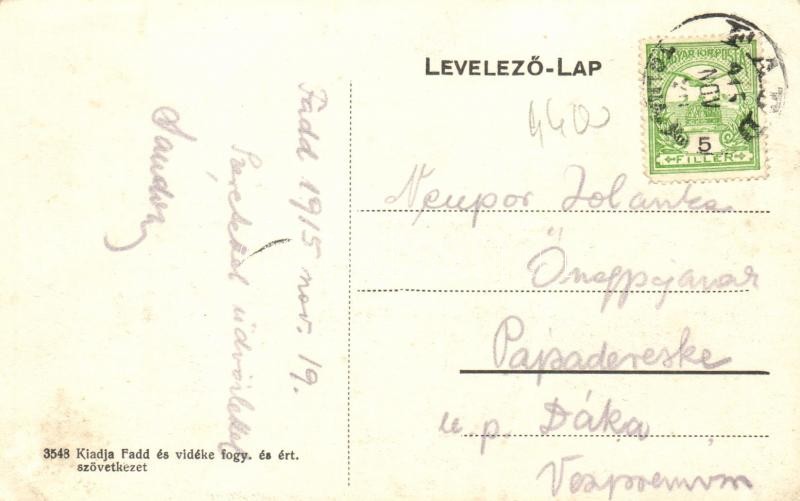 LEVELEZŐ-LAP
MAGYAR KIR. POSTA
5
FILLÉR
FADD
915 NOV
440
Fadd 1915 nov. 19.
Szeretettel üdvözlettel
Sándor
Neupor Jolánka
Őnagysága
Pápadereske
u. p. Dáka
Veszprém vm
3548 Kiadja Fadd és vidéke fogy. és ért.
szövetkezet